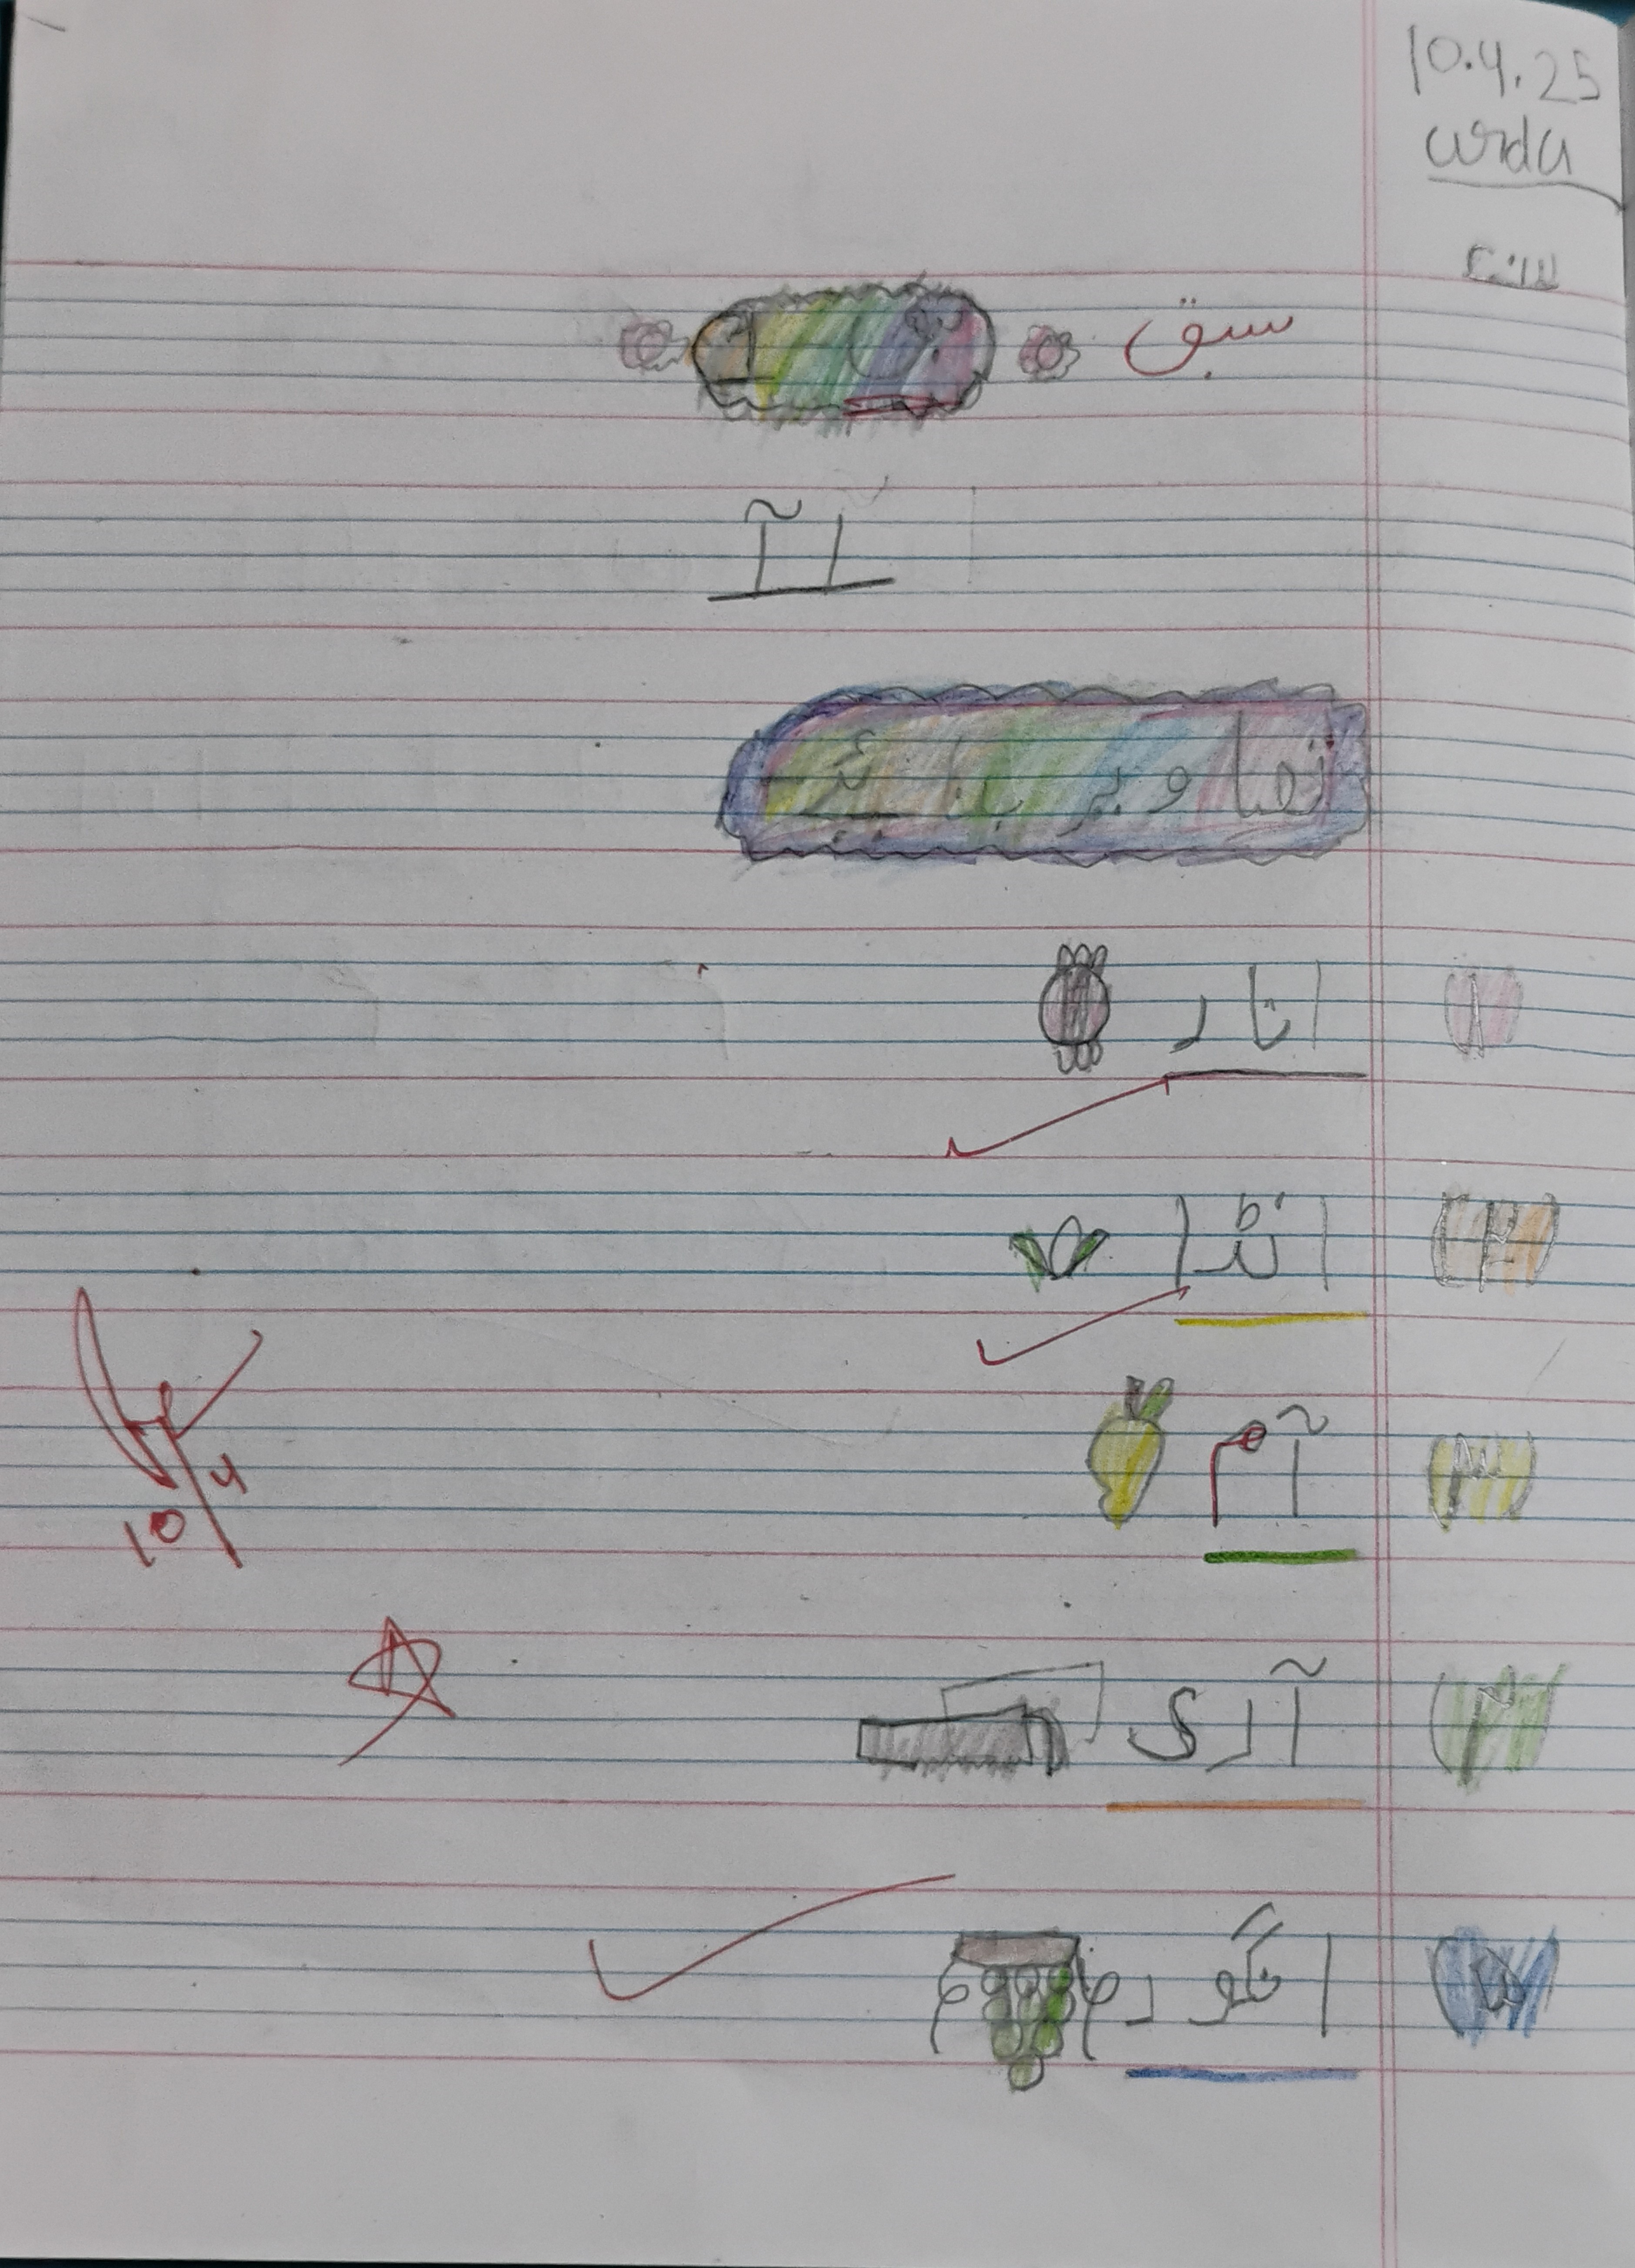 10.4.25
urdu
سبق
ا آ
تصاویر بنائیے
۱ انار
۲ انڈا
۳ آم
۴ آری
۵ انگور
10/4